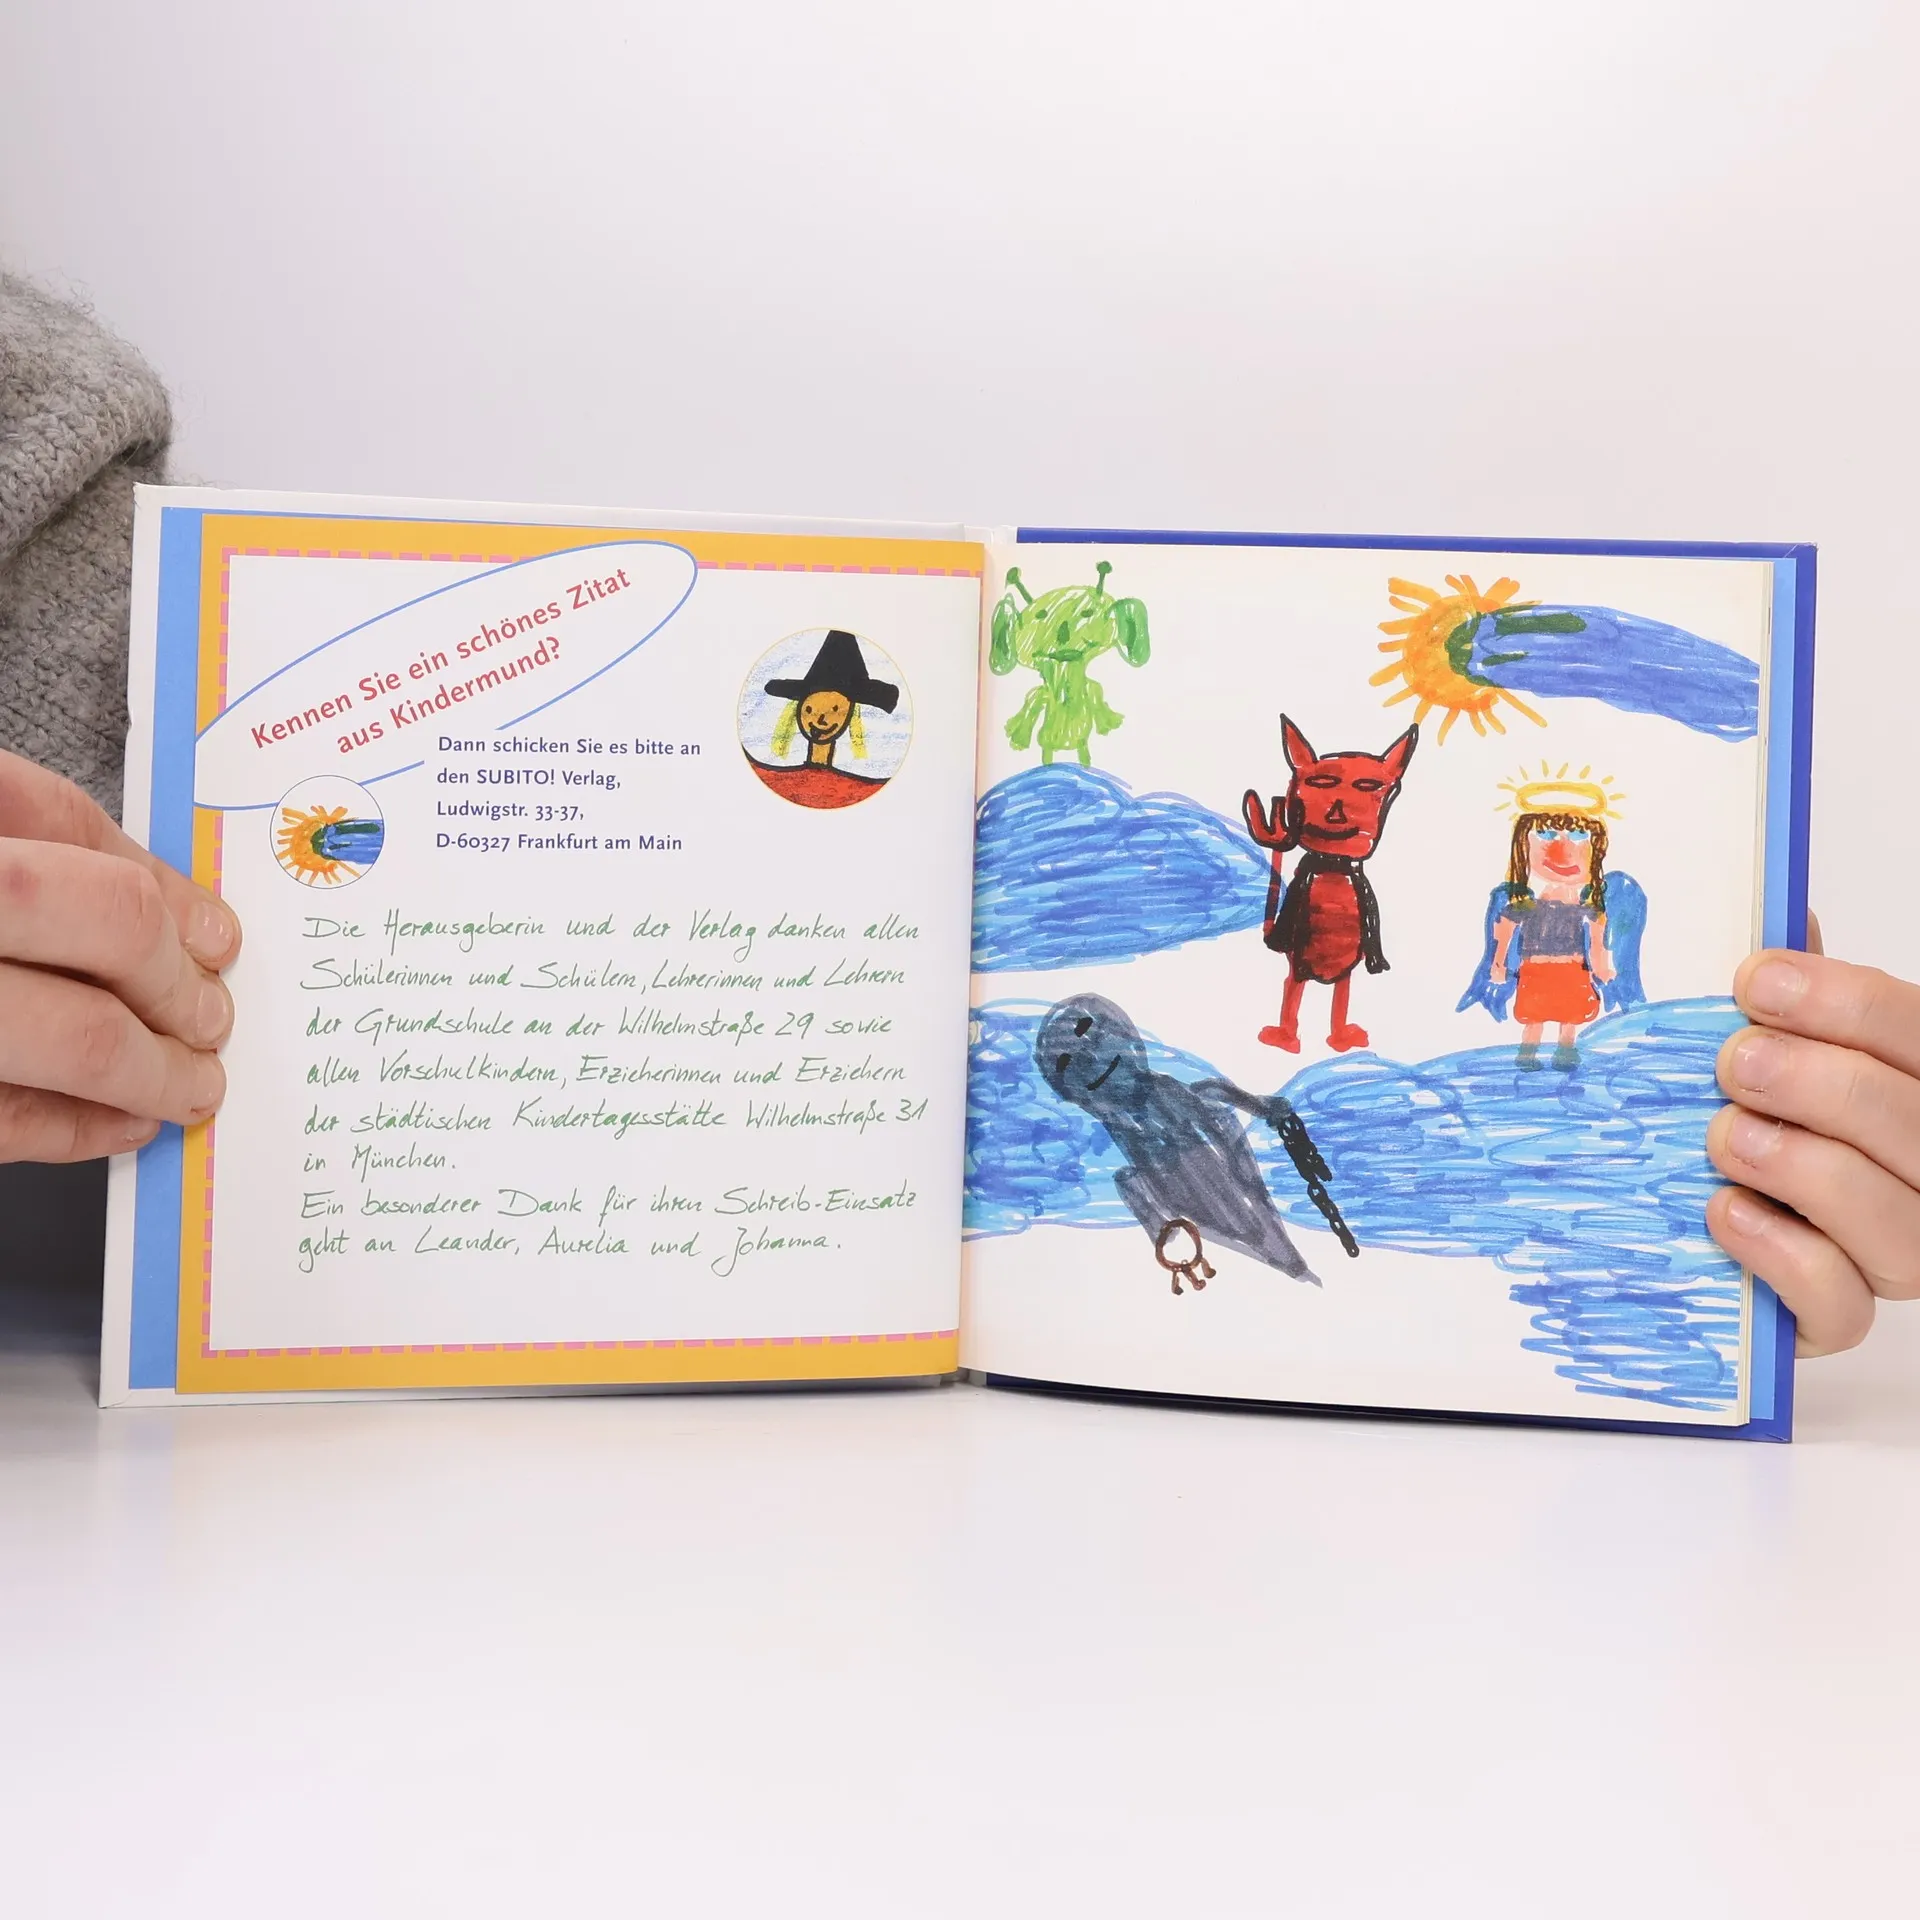 Kennen Sie ein schönes Zitat
aus Kindermund?
Dann schicken Sie es bitte an
den SUBITO! Verlag,
Ludwigstr. 33-37,
D-60327 Frankfurt am Main
Die Herausgeberin und der Verlag danken allen
Schülerinnen und Schülern, Lehrerinnen und Lehrern
der Grundschule an der Wilhelmstraße 29 sowie
allen Vorschulkindern, Erzieherinnen und Erziehern
der städtischen Kindertagesstätte Wilhelmstraße 31
in München.
Ein besonderer Dank für ihren Schreib-Einsatz
geht an Leander, Aurelia und Johanna.